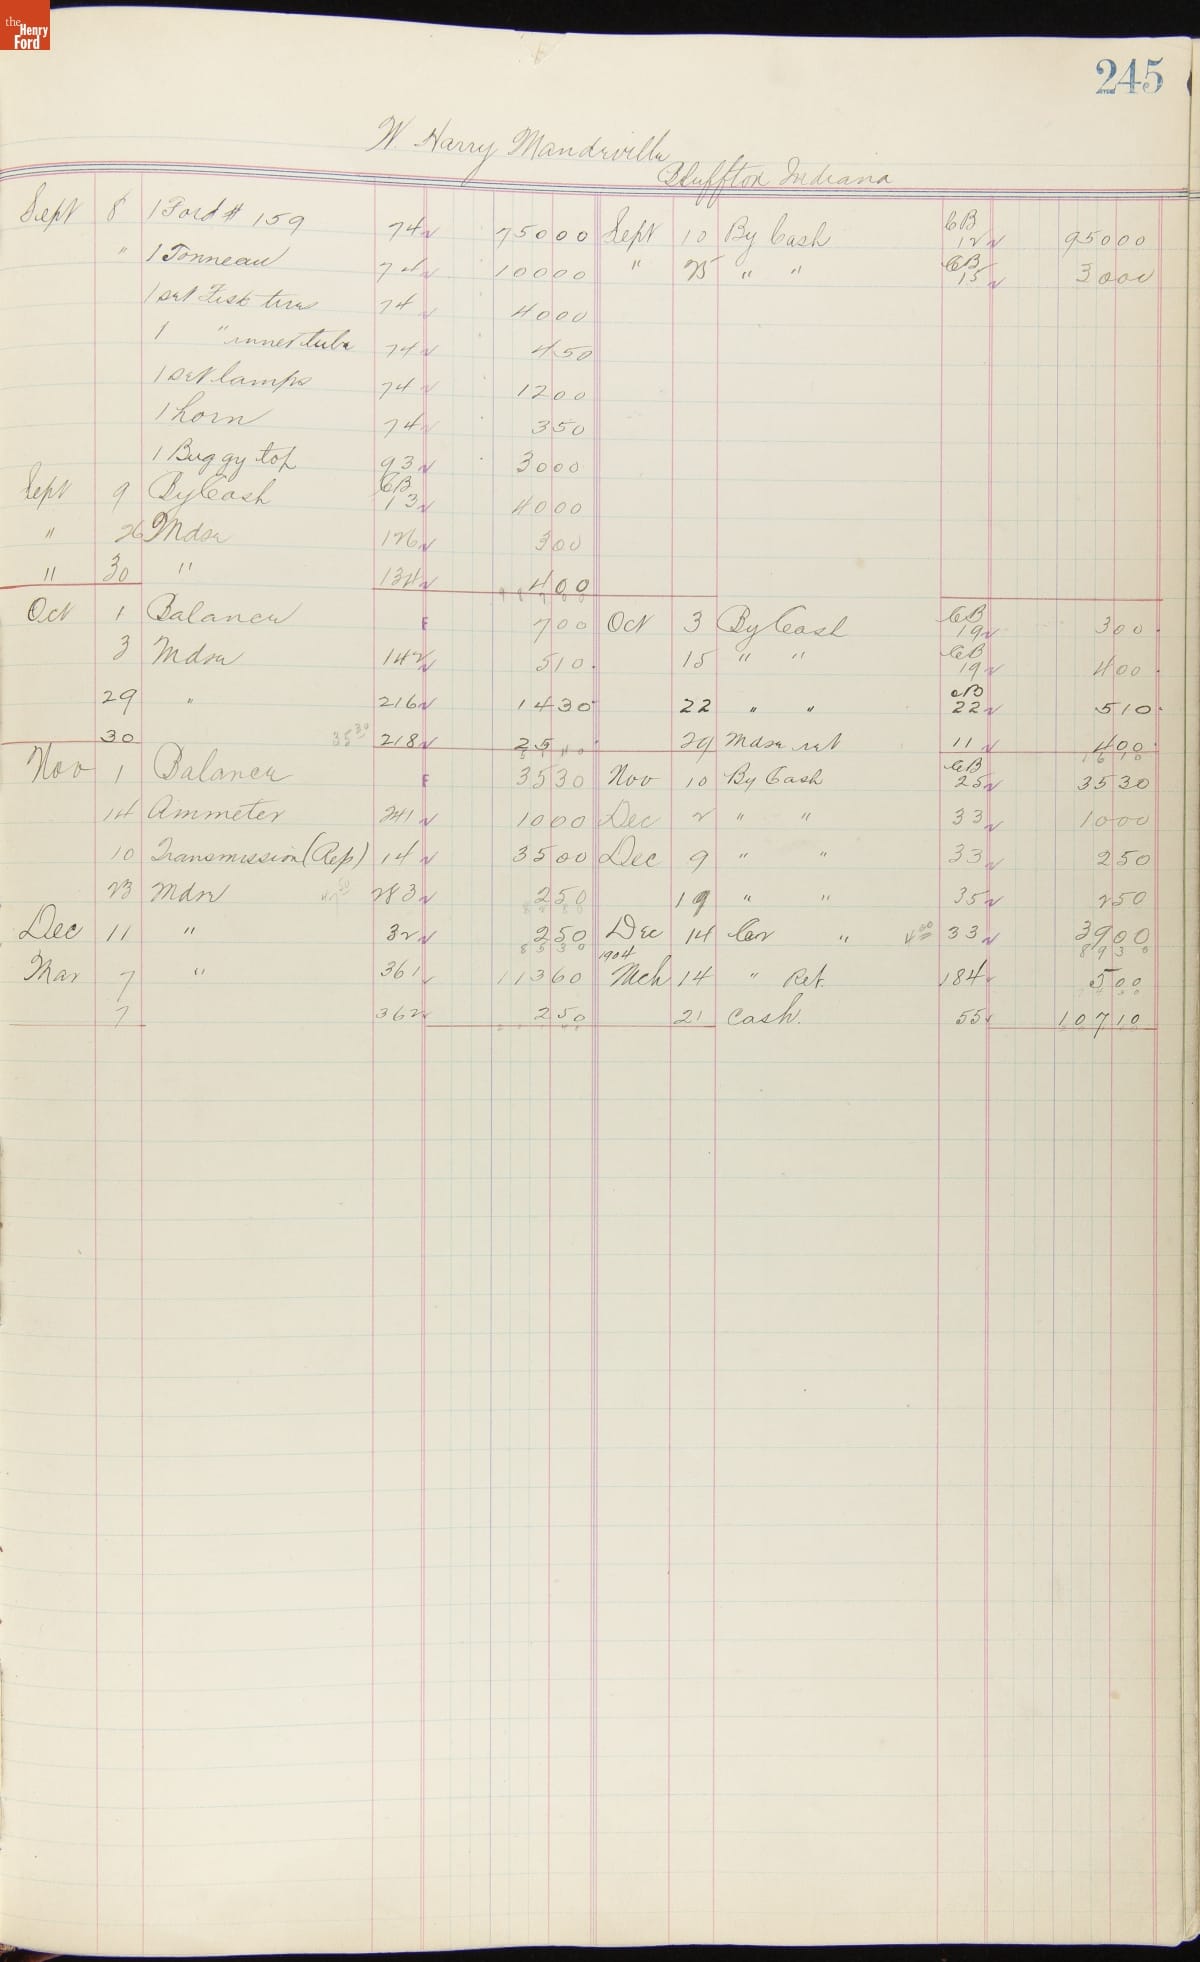 the Henry Ford
245
W. Harry Mandeville
Bluffton Indiana
Sept 8 1 Ford # 159 74 750 00 Sept 10 By Cash CB 12 950 00
" 1 Tonneau 74 100 00 " 25 " " CB 15 30 00
1 set Fisk tires 74 40 00
1 " inner tube 74 4 50
1 set lamps 74 12 00
1 horn 74 3 50
1 Buggy top 93 30 00
Sept 9 By Cash CB 13 40 00
" 26 Mdse 126 3 00
" 30 " 134 4 00
Oct 1 Balance F 7 00 Oct 3 By Cash CB 19 3 00
3 Mdse 142 5 10 15 " " CB 19 4 00
29 " 216 14 30 22 " " CB 22 5 10
30 35 30 218 25 29 Mdse ret 11 4 00
16 10
Nov 1 Balance F 35 30 Nov 10 By Cash CB 25 35 30
14 Ammeter 241 10 00 Dec 2 " " 33 10 00
10 Transmission (Rep) 14 35 00 Dec 9 " " 33 2 50
23 Mdse 283 2 50 19 " " 35 2 50
Dec 11 " 32 2 50 Dec 14 " 4 00 33 39 00
85 30 89 30
1904
Mar 7 " 361 113 60 Mch 14 " Ret. 184 5 00
7 362 2 50 21 Cash. 55 107 10